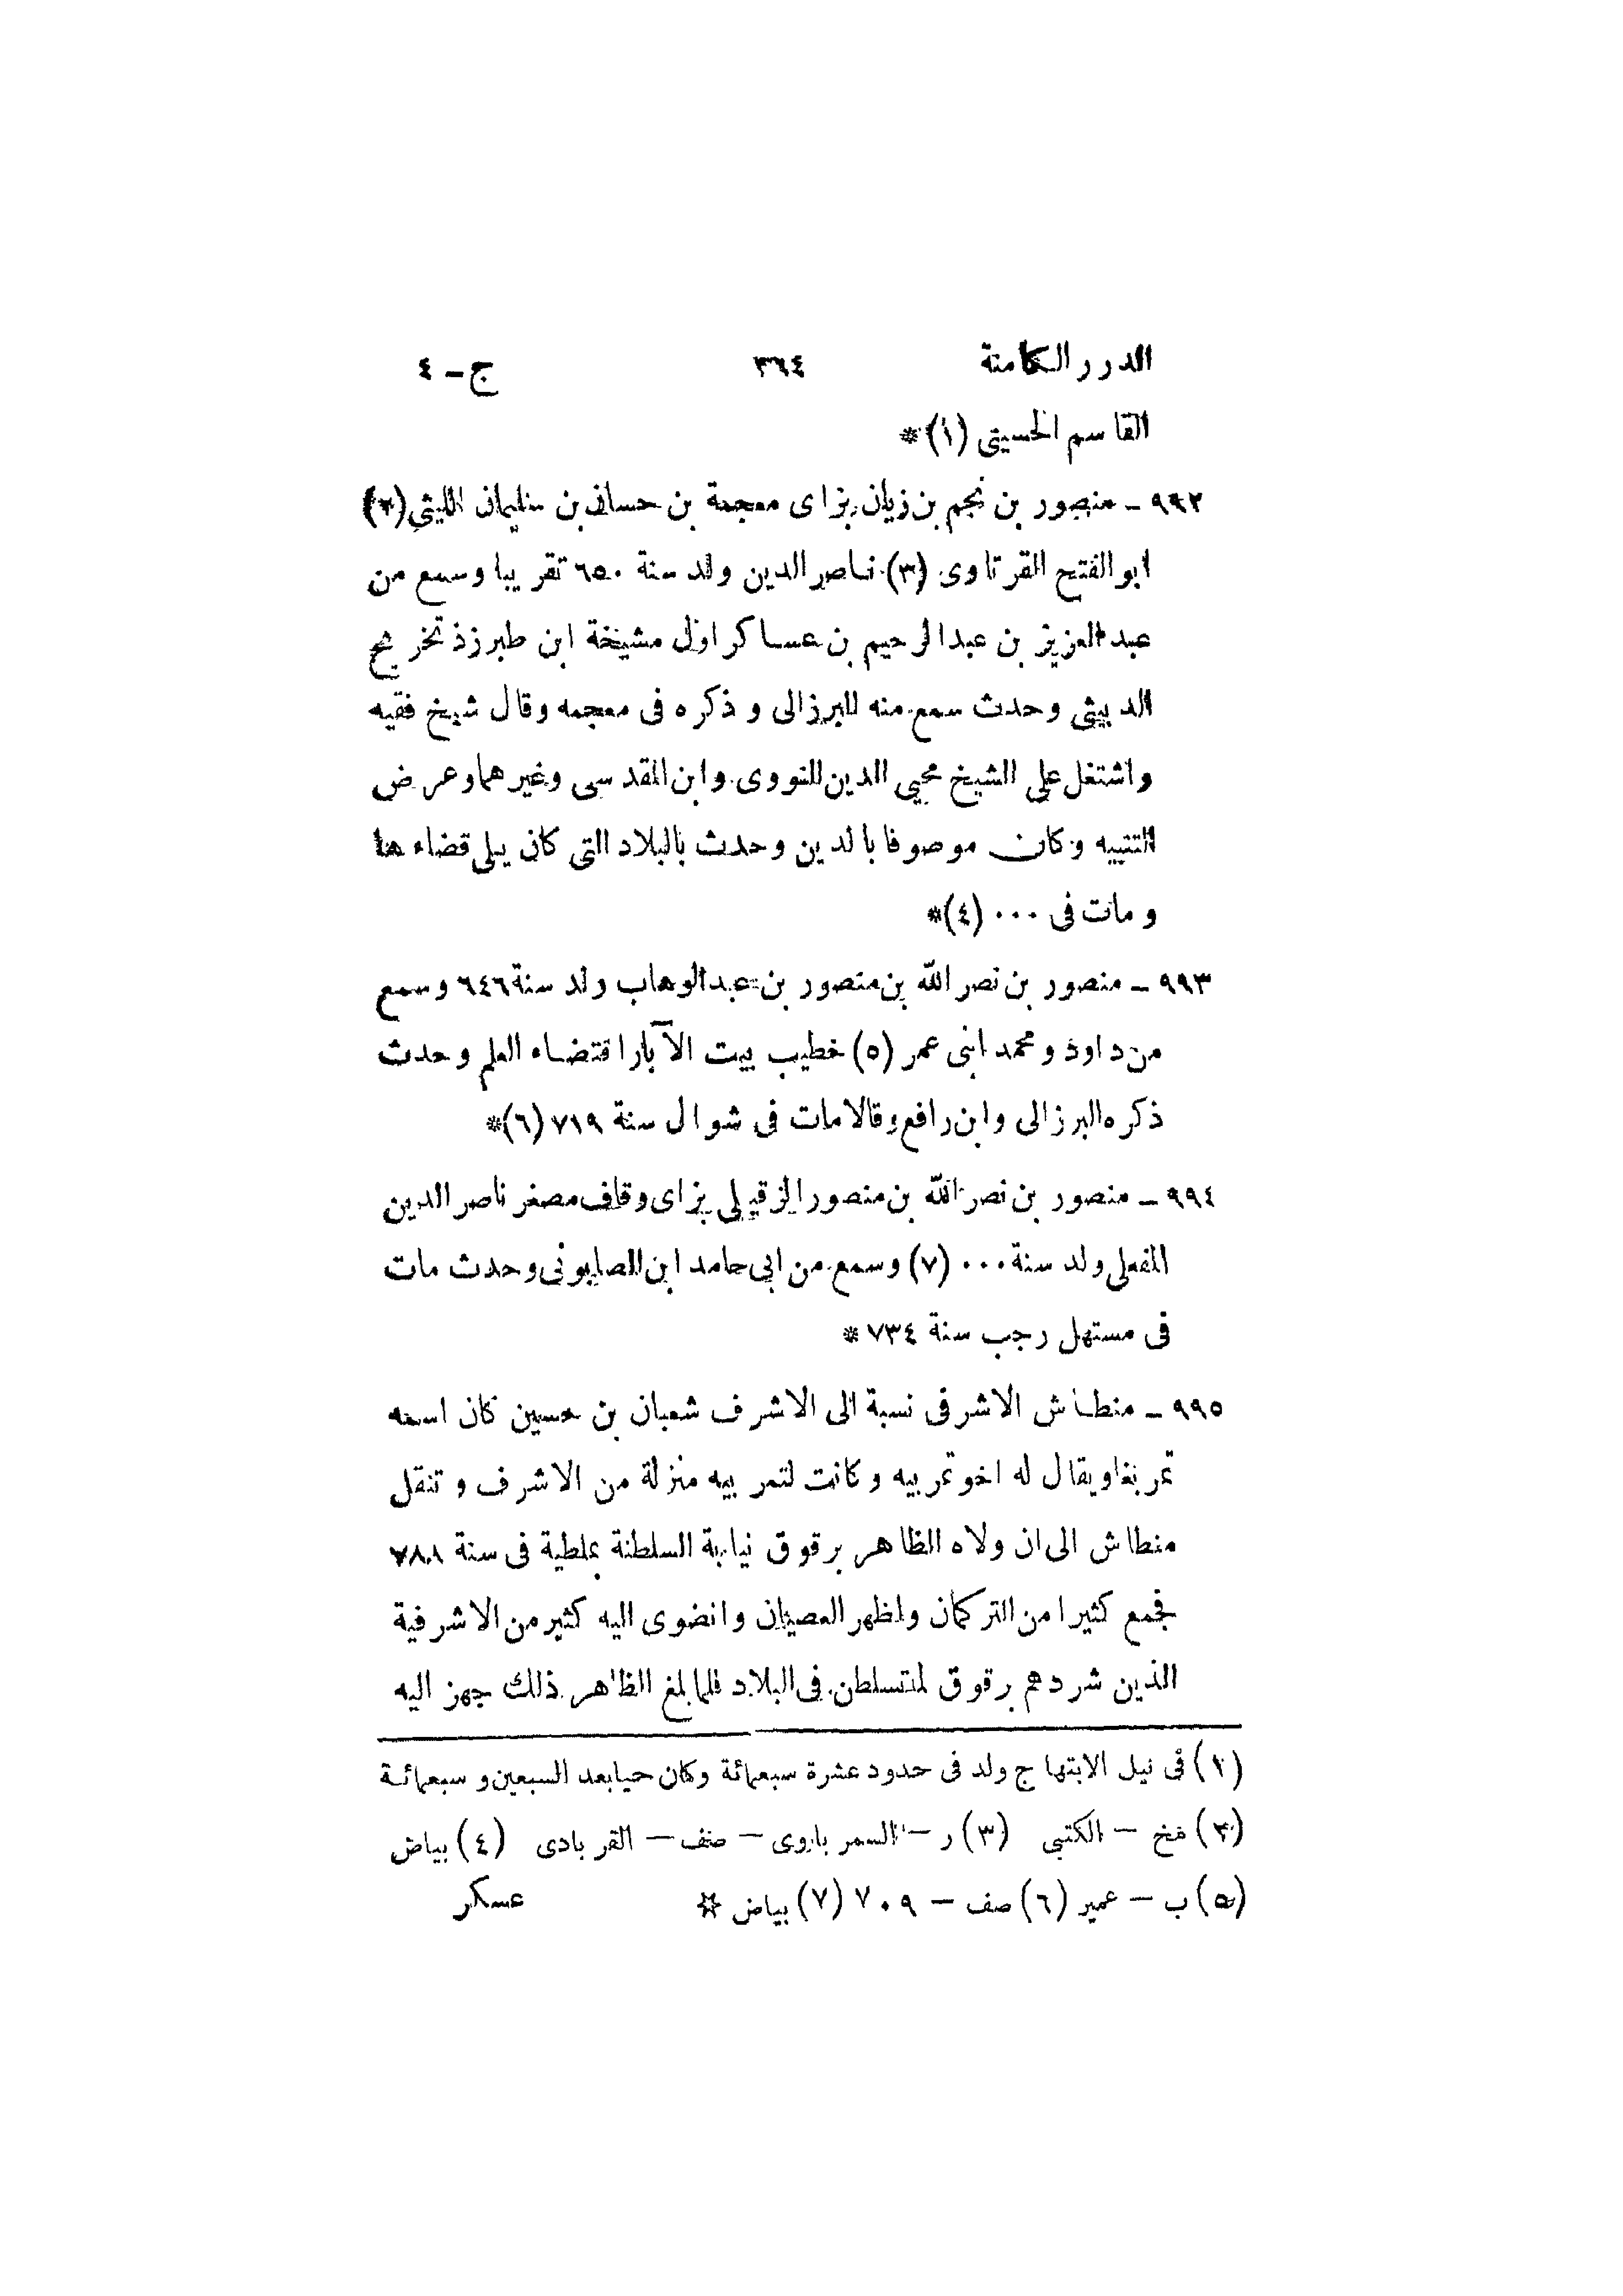 الدرر الكامنة ٣٦٤ ج - ٤
القاسم الحسينى (١) *
٩٩٢ - منصور بن نجم بن زيان بزاى معجمة بن حسان بن سليمان الليثى (٢)
ابو الفتح القرتاوى (٣) ناصر الدين ولد سنة ٦٥٠ تقريبا وسمع من
عبد العزيز بن عبد الرحيم بن عساكر اول مشيخة ابن طبرزذ تخريج
الدبيثى وحدث سمع منه البرزالى و ذكره فى معجمه وقال شيخ فقيه
واشتغل على الشيخ محيى الدين النووى وابن المقدسى وغيرهما وعرض
التنبيه وكان موصوفا بالدين وحدث بالبلاد التى كان يلى قضاءها
ومات فى ... (٤) *
٩٩٣ - منصور بن نصر الله بن منصور بن عبد الوهاب ولد سنة ٦٤٦ وسمع
من داود و محمد ابنى عمر (٥) خطيب بيت الآبار اقتضاء العلم وحدث
ذكره البرزالى وابن رافع وقالا مات فى شوال سنة ٧١٩ (٦) *
٩٩٤ - منصور بن نصر الله بن منصور الزقيلى بزاى وقاف مصغر ناصر الدين
المفعلى ولد سنة ... (٧) وسمع من ابى حامد ابن الصابونى وحدث مات
فى مستهل رجب سنة ٧٣٤ *
٩٩٥ - منطاش الاشرفى نسبة الى الاشرف شعبان بن حسين كان اسمه
تمربغا ويقال له اخو تمربيه وكانت لتمربيه منزلة من الاشرف و تنقل
منطاش الى ان ولاه الظاهر برقوق نيابة السلطنة بملطية فى سنة ٧٨٨
فجمع كثيرا من التركمان واظهر العصيان وانضوى اليه كثير من الاشرفية
الذين شردهم برقوق لما تسلطن فى البلاد فلما بلغ الظاهر ذلك جهز اليه
(١) فى نيل الابتهاج ولد فى حدود عشرة سبعمائة وكان حيا بعد السبعين و سبعمائة
(٢) مخ - الكتبى (٣) ر - السمرباروى - صف - القربادى (٤) بياض
(٥) ب - عمير (٦) صف - ٧٠٩ (٧) بياض * عسكر